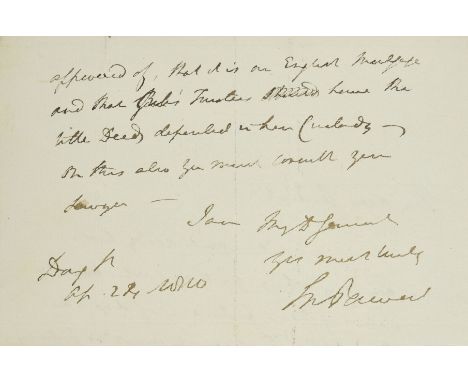 approved of, that it is an English Mortgage
and that Trustees should have the
title Deeds deposited in their Custody —
On this also you must consult your
Lawyer —
I am My D General
Yrs most truly
Ap. 24